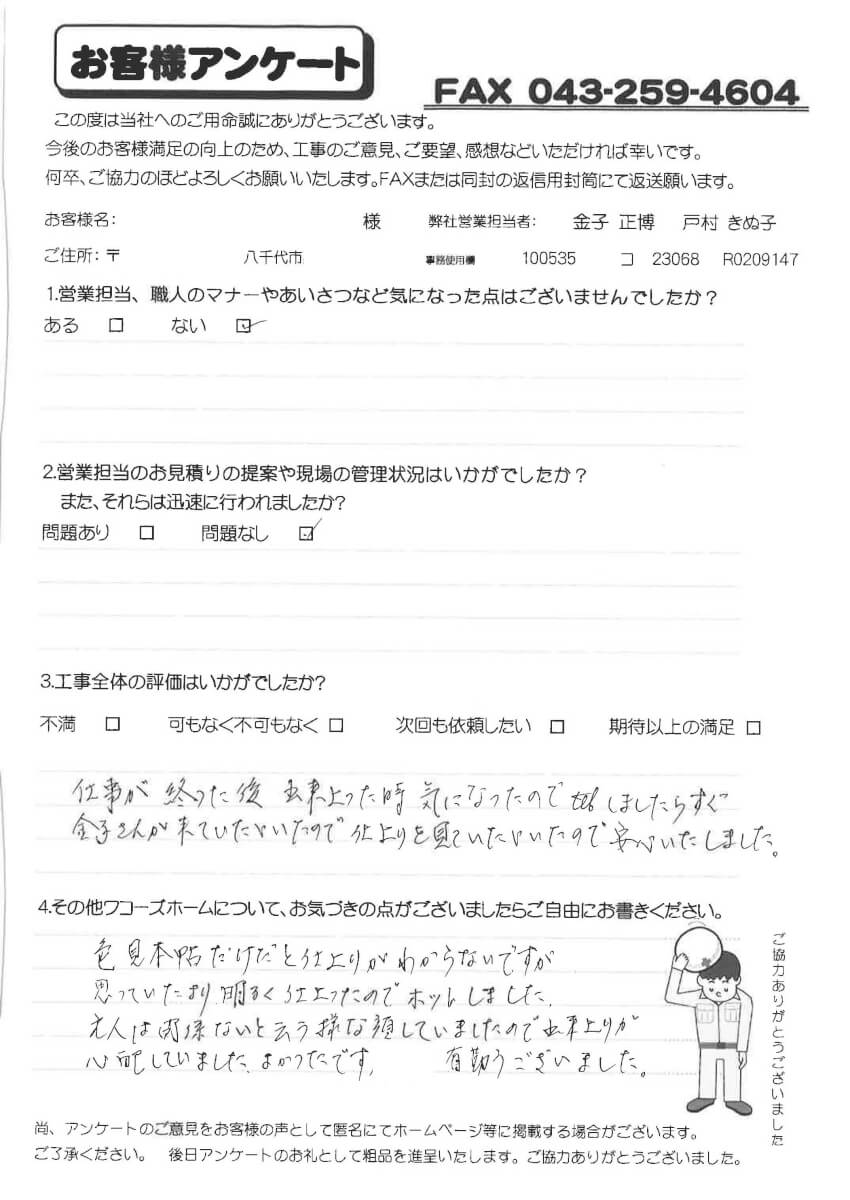 お客様アンケート
FAX 043-259-4604
この度は当社へのご用命誠にありがとうございます。
今後のお客様満足の向上のため、工事のご意見、ご要望、感想などいただければ幸いです。
何卒、ご協力のほどよろしくお願いいたします。FAXまたは同封の返信用封筒にて返送願います。
お客様名: 様 弊社営業担当者: 金子 正博 戸村 きぬ子
ご住所:〒 八千代市 事務使用欄 100535 コ 23068 R0209147
1.営業担当、職人のマナーやあいさつなど気になった点はございませんでしたか?
ある □ ない ☑
2.営業担当のお見積りの提案や現場の管理状況はいかがでしたか?
また、それらは迅速に行われましたか?
問題あり □ 問題なし ☑
3.工事全体の評価はいかがでしたか?
不満 □ 可もなく不可もなく □ 次回も依頼したい □ 期待以上の満足 □
仕事が終った後 出来上った時 気になったので telしましたらすぐ
金子さんが来ていただいたので仕上りを見ていただいたので安心いたしました。
4.その他ワコーズホームについて、お気づきの点がございましたらご自由にお書きください。
色見本帖だけだと仕上りがわからないですが
思っていたより明るく仕上ったのでホットしました。
主人は関係ないと云う様な顔していましたので出来上りが
心配していました。よかったです。 有難うございました。
ご協力ありがとうございました
尚、アンケートのご意見をお客様の声として匿名にてホームページ等に掲載する場合がございます。
ご了承ください。 後日アンケートのお礼として粗品を進呈いたします。ご協力ありがとうございました。